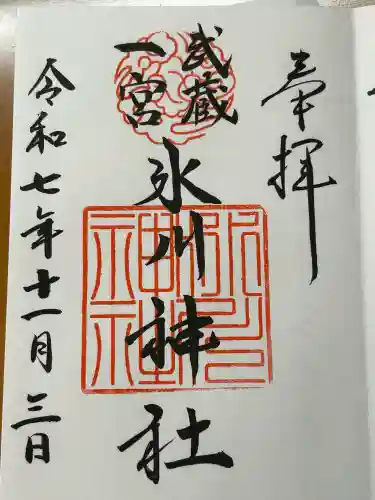 奉拝
武蔵
一宮
氷川神社
令和七年十一月三日
氷川
神社